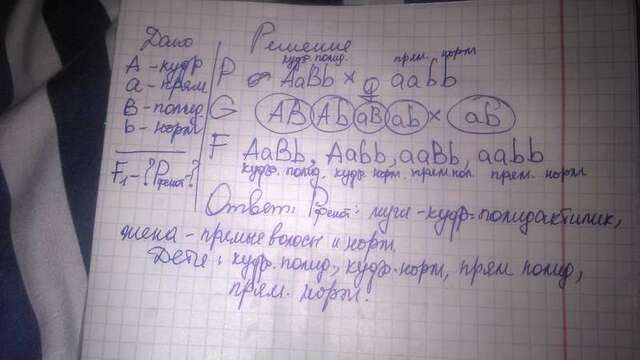 Дано
A - кудр
a - прям
B - полид
b - норм
F₁ - ? Pфенот - ?
Решение
кудр. полид. прям. норм
P ♂ AaBb × ♀ aabb
G AB Ab aB ab × ab
F AaBb, Aabb, aaBb, aabb
кудр. полид. кудр. норм. прям. пол. прям. норм
Ответ: Pфенот: муж - кудр. полидактилик,
жена - прямые волосы и норм
Дети: кудр. полид, кудр. норм, прям полид,
прям. норм.